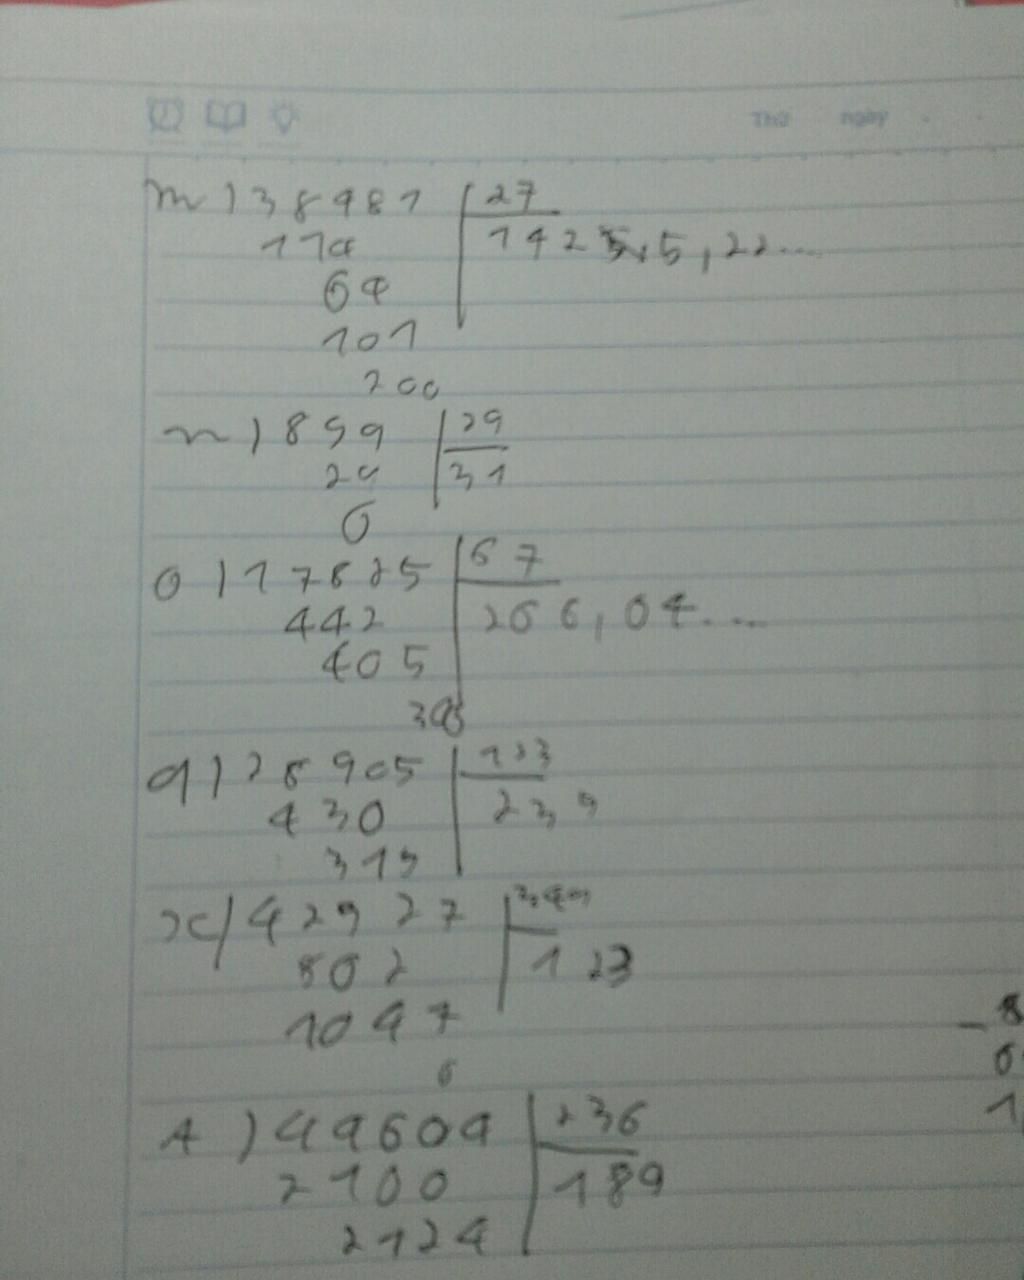 Thứ ngày
m) 38481 27
114 1425,5,22...
64
101
200
n) 899 29
29 31
0
o) 17825 67
442 266,04....
405
q) 28905 123
430 239
315
x) 42927
802 123
1047
0
A) 44604 236
2100 189
2124